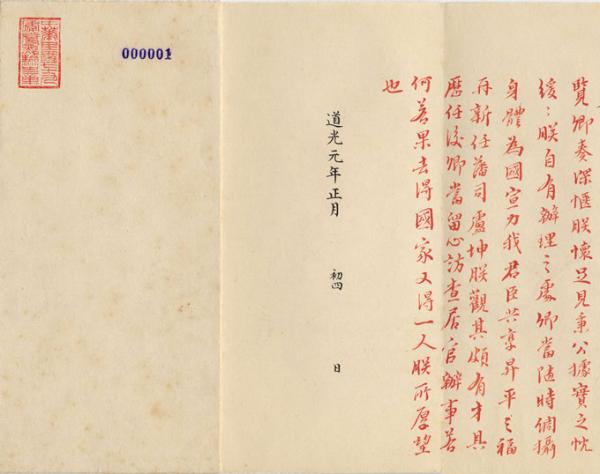 覽卿奏深愜朕懷足見秉公據實之忱
緩〻朕自有辦理之處卿當隨時調攝
身體為國宣力我君臣共享昇平之福
再新任藩司盧坤朕觀其頗有才具
歷任後卿當留心訪查居官辦事若
何若果去得國家又得一人朕所厚望
也
道光元年正月 初四 日
000001